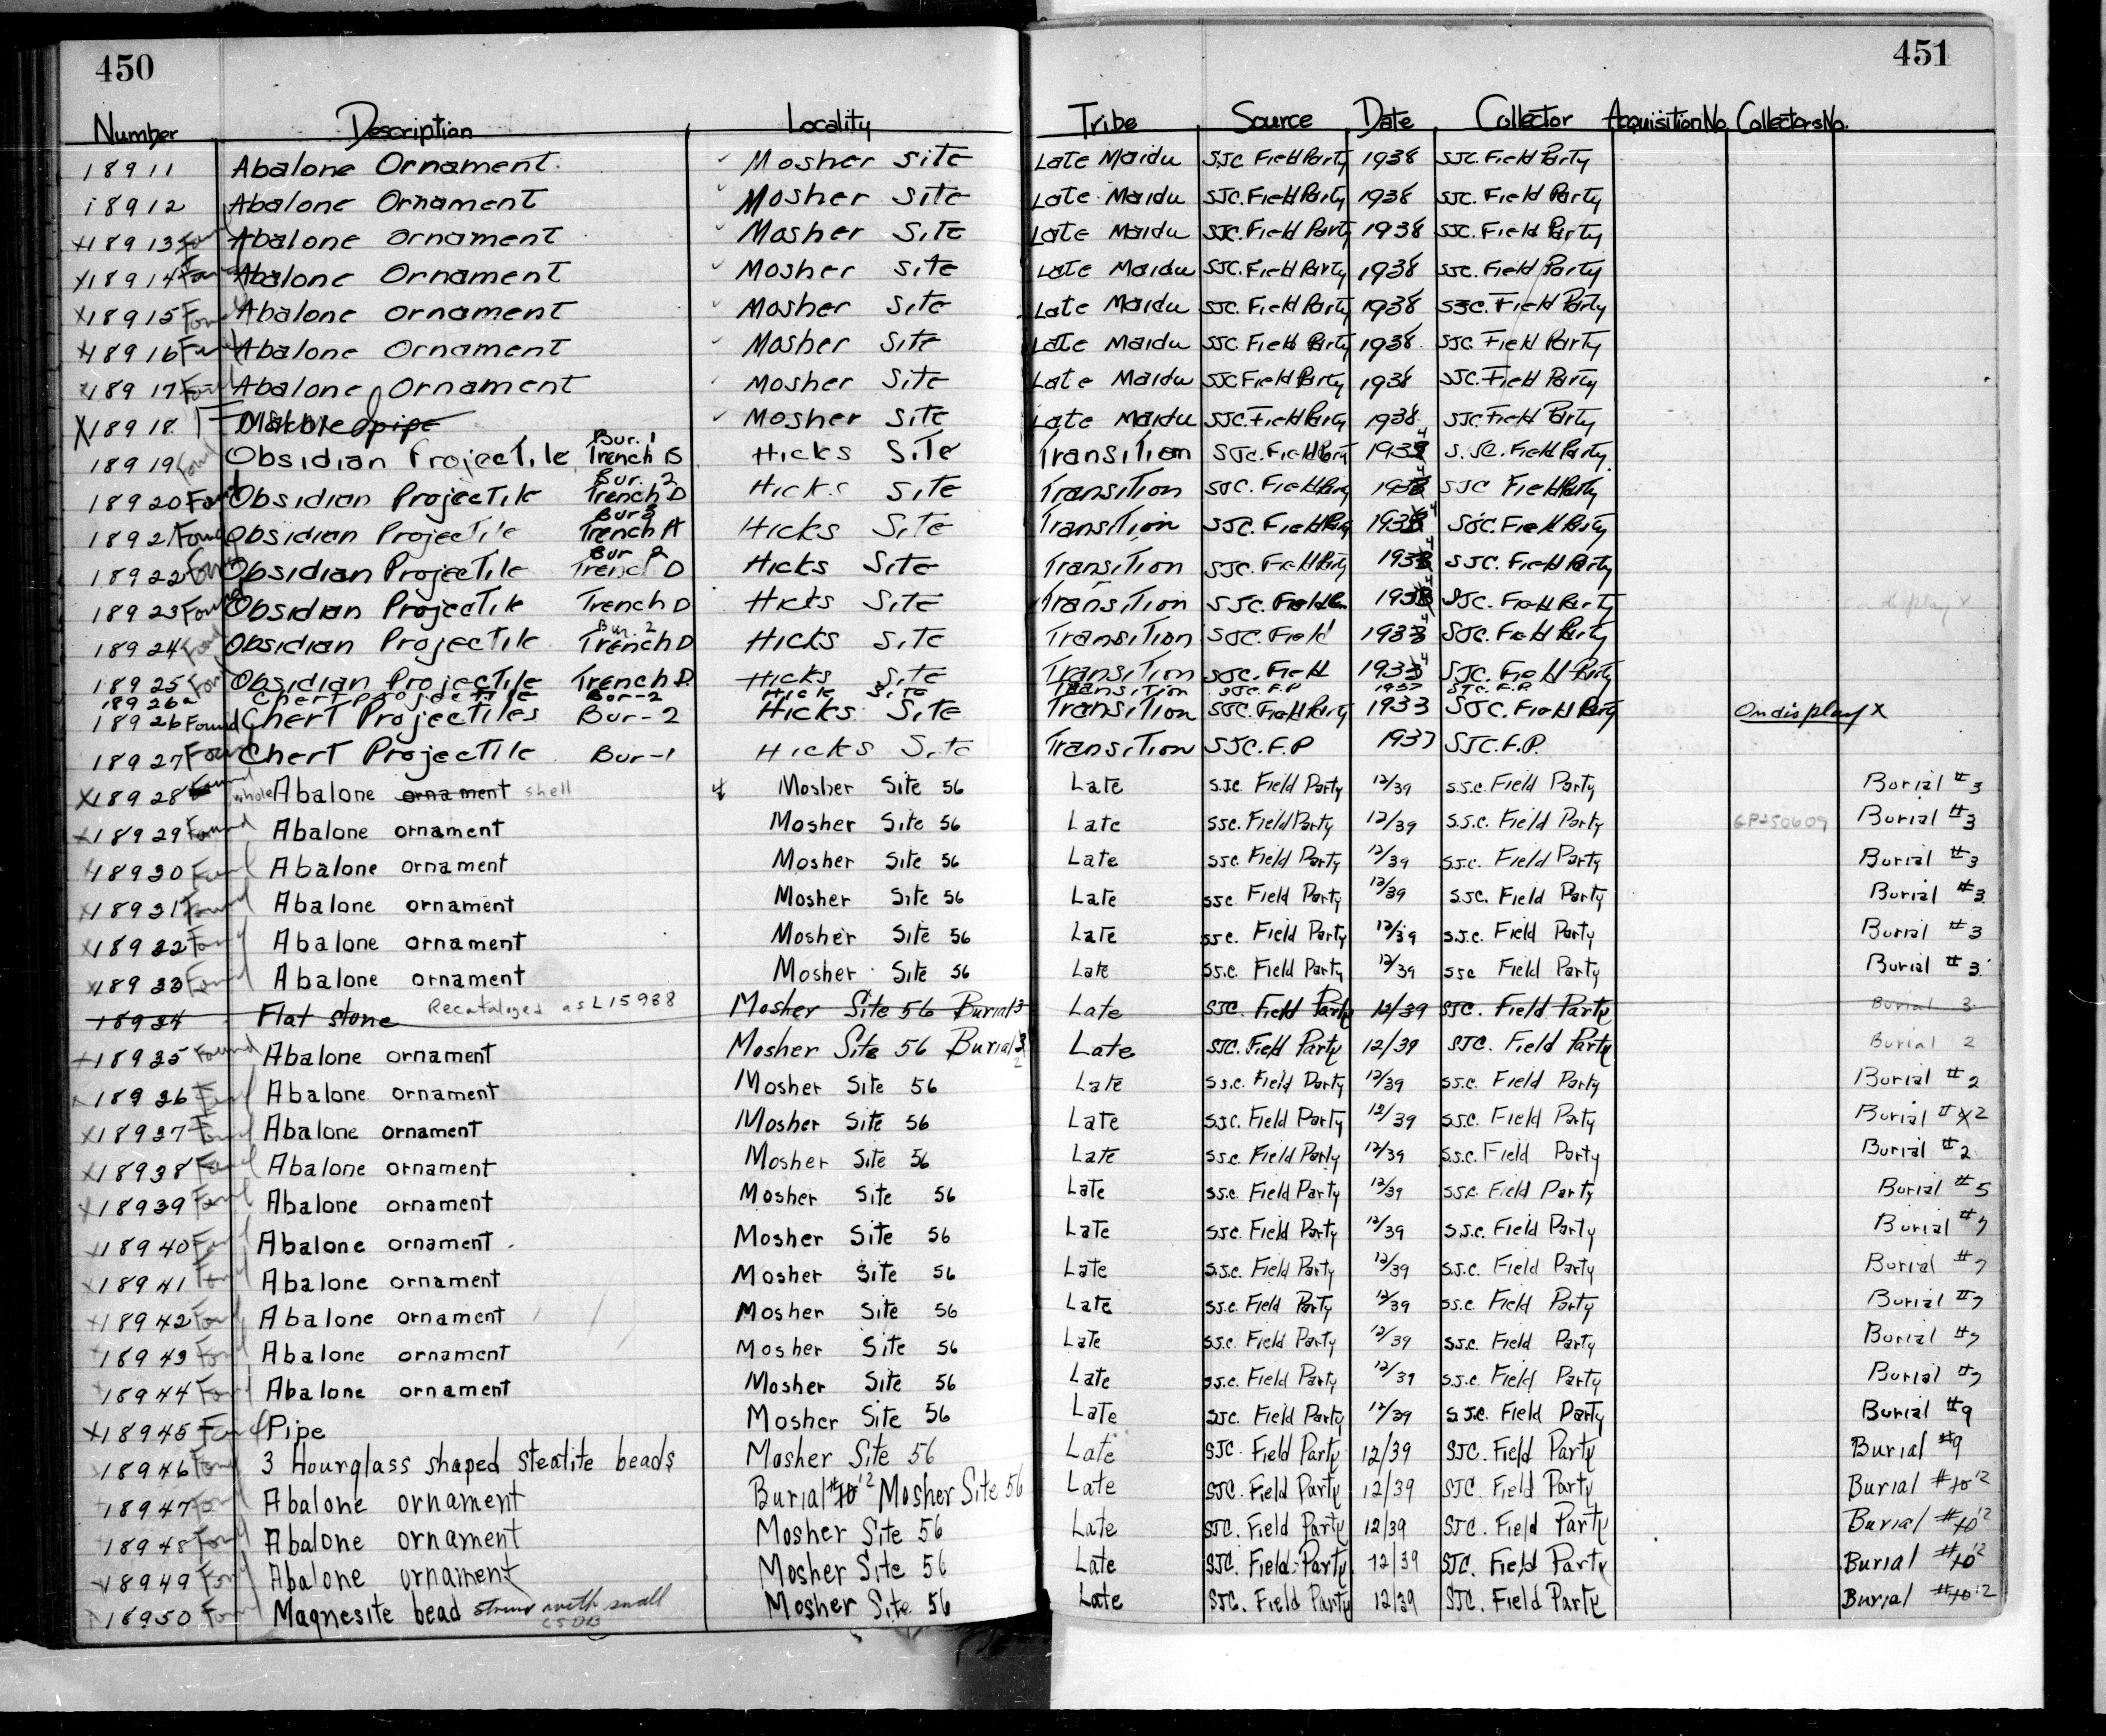 450 451
Number Description Locality Tribe Source Date Collector Acquisition No. Collectors No.
18911 Abalone Ornament Mosher Site Late Maidu SJC. Field Party 1938 SJC. Field Party
18912 Abalone Ornament Mosher Site Late Maidu SJC. Field Party 1938 SJC. Field Party
X18913 Found Abalone Ornament Mosher Site Late Maidu SJC. Field Party 1938 SJC. Field Party
X18914 Found Abalone Ornament Mosher Site Late Maidu SJC. Field Party 1938 SJC. Field Party
X18915 Found Abalone Ornament Mosher Site Late Maidu SJC. Field Party 1938 SJC. Field Party
X18916 Found Abalone Ornament Mosher Site Late Maidu SJC. Field Party 1938 SJC Field Party
X18917 Found Abalone Ornament Mosher Site Late Maidu SJC Field Party 1938 SJC. Field Party
X18918 pipe Mosher Site Late Maidu SJC. Field Party 1938 SJC Field Party
18919 Found Obsidian Projectile Bur. 1 Trench B Hicks Site Transition SJC. Field Party 1934 S.JC. Field Party
18920 Found Obsidian Projectile Bur. 2 Trench D Hicks Site Transition SJC. Field Party 1934 SJC Field Party
18921 Found Obsidian Projectile Trench A Hicks Site Transition SJC. Field Party 1934 SJC. Field Party
18922 Found Obsidian Projectile Bur 2 Trench D Hicks Site Transition SJC. Field Party 1934 SJC. Field Party
18923 Found Obsidian Projectile Trench D Hicks Site Transition SJC. Field 1934 SJC. Field Party
18924 Found Obsidian Projectile Bur. 2 Trench D Hicks Site Transition SJC. Field 1934 SJC. Field Party
18925 Found Obsidian Projectile Trench D. Hicks Site Transition SJC. Field 1934 SJC. Field Party
18926a Chert Projectile Bur-2 Hick Site Transition SJC. F.P 1933 SJC. F.P.
18926 Found Chert Projectiles Bur-2 Hicks Site Transition SJC. Field Party 1933 SJC. Field Party On display X
18927 Found Chert Projectile Bur-1 Hicks Site Transition SJC. F.P 1933 SJC.F.P.
X18928 Found whole Abalone ornament shell Mosher Site 56 Late S.J.C. Field Party 12/39 S.J.C. Field Party Burial #3
X18929 Found Abalone ornament Mosher Site 56 Late SJC. Field Party 12/39 S.J.C. Field Party Burial #3
X18930 Found Abalone ornament Mosher Site 56 Late SJC. Field Party 12/39 S.J.C. Field Party Burial #3
X18931 Found Abalone ornament Mosher Site 56 Late SJC Field Party 12/39 S.J.C. Field Party Burial #3
X18932 Found Abalone ornament Mosher Site 56 Late SJC. Field Party 12/39 S.J.C. Field Party Burial #3
X18933 Found Abalone ornament Mosher Site 56 Late S.J.C. Field Party 12/39 SJC Field Party Burial #3
18934 Flat stone Recataloged as L15938 Mosher Site 56 Burial 3 Late SJC. Field Party 12/39 SJC. Field Party Burial 3
X18935 Found Abalone ornament Mosher Site 56 Burial 3 2 Late SJC. Field Party 12/39 SJC. Field Party Burial 2
X18936 Found Abalone ornament Mosher Site 56 Late S.J.C. Field Party 12/39 S.J.C. Field Party Burial #2
X18937 Found Abalone ornament Mosher Site 56 Late S.J.C. Field Party 12/39 S.J.C. Field Party Burial # 2
X18938 Found Abalone ornament Mosher Site 56 Late S.J.C. Field Party 12/39 S.J.C. Field Party Burial #2
X18939 Found Abalone ornament Mosher Site 56 Late S.J.C. Field Party 12/39 S.J.C. Field Party Burial #5
X18940 Found Abalone ornament Mosher Site 56 Late SJC. Field Party 12/39 S.J.C. Field Party Burial #7
X18941 Found Abalone ornament Mosher Site 56 Late S.J.C. Field Party 12/39 S.J.C. Field Party Burial #7
X18942 Found Abalone ornament Mosher Site 56 Late S.J.C. Field Party 12/39 S.J.C Field Party Burial #7
X18943 Found Abalone ornament Mosher Site 56 Late S.J.C. Field Party 12/39 S.J.C. Field Party Burial #7
X18944 Found Abalone ornament Mosher Site 56 Late S.J.C. Field Party 12/39 S.J.C. Field Party Burial #7
X18945 Found Pipe Mosher Site 56 Late SJC. Field Party 12/39 S.J.C. Field Party Burial #9
18946 Found 3 Hourglass shaped steatite beads Mosher Site 56 Late SJC. Field Party 12/39 SJC. Field Party Burial #9
18947 Found Abalone ornament Burial #10 12 Mosher Site 56 Late SJC. Field Party 12/39 SJC. Field Party Burial #10 12
18948 Found Abalone ornament Mosher Site 56 Late SJC. Field Party 12/39 SJC. Field Party Burial #10 12
X18949 Found Abalone ornament Mosher Site 56 Late SJC. Field Party 12/39 SJC. Field Party Burial #10 12
18950 Found Magnesite bead strung with small CSDB Mosher Site 56 Late SJC. Field Party 12/39 SJC. Field Party Burial #10 12